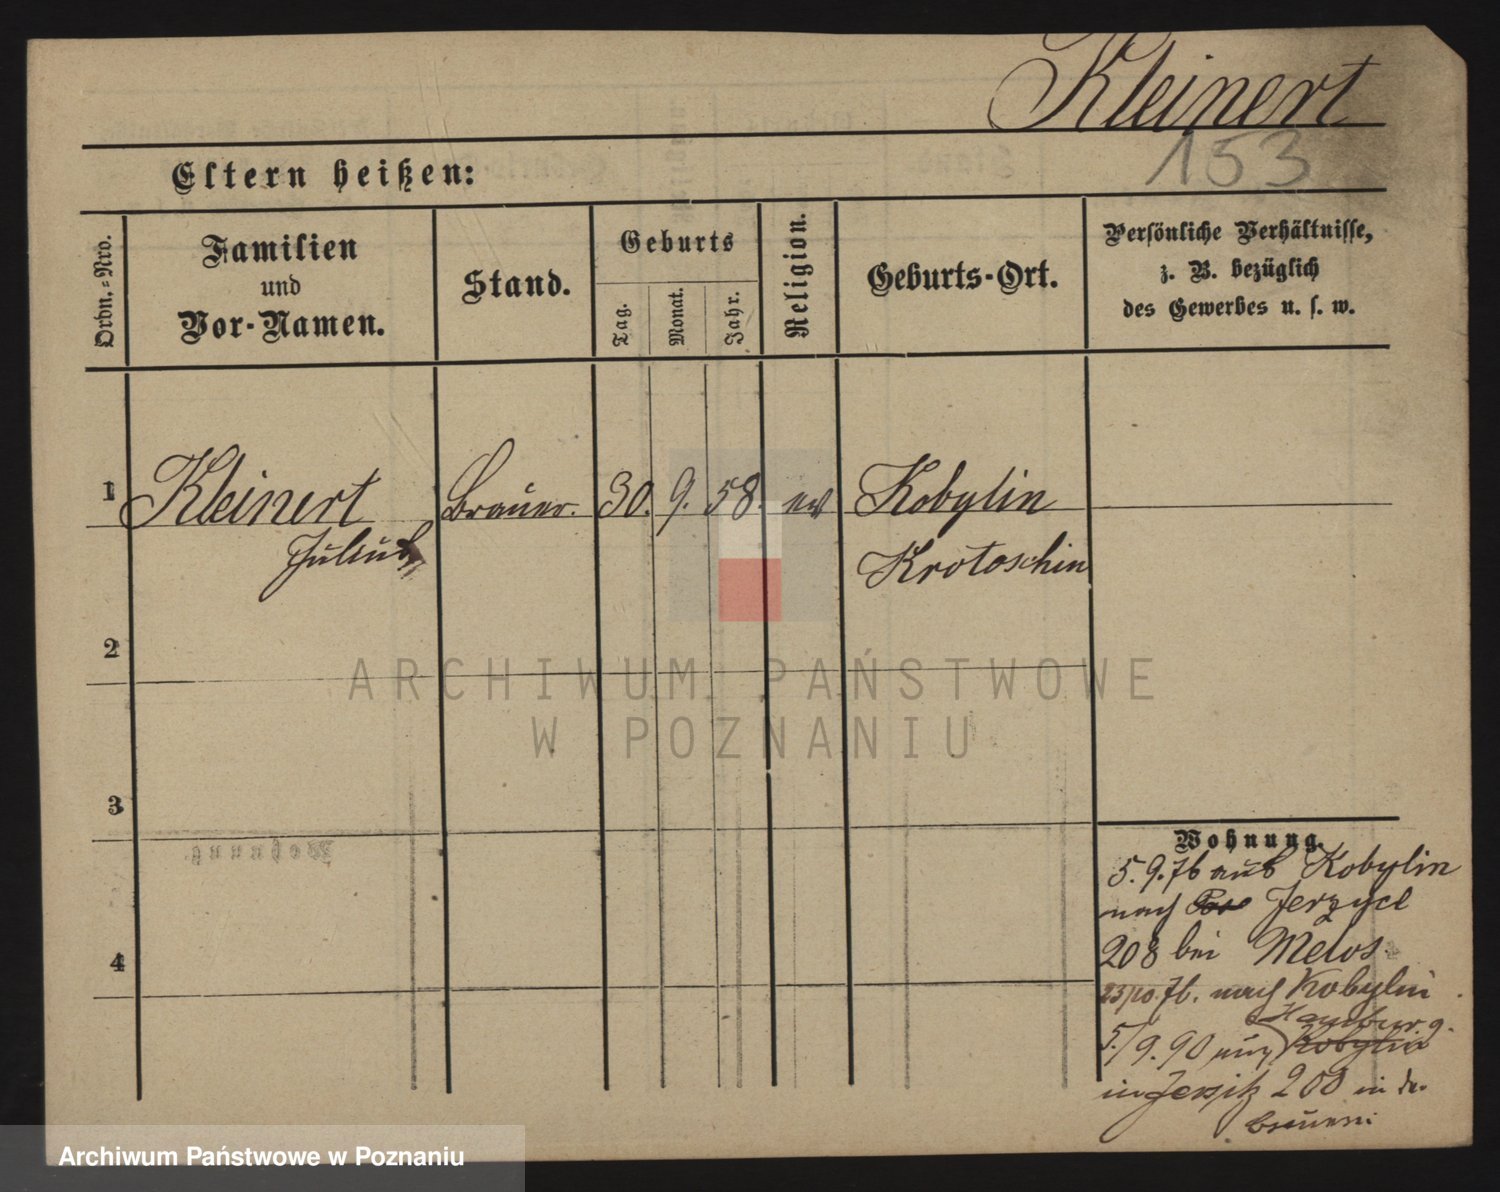 Kleinert
153
Eltern heißen:
Ordn.-Nro.
Familien
und
Vor-Namen.
Stand.
Geburts
Tag.
Monat.
Jahr.
Religion.
Geburts-Ort.
Persönliche Verhältnisse,
z. B. bezüglich
des Gewerbes u. s. w.
1 Kleinert Brauer. 30. 9. 58. ev Kobylin
Julius Krotoschin
2
ARCHIWUM PAŃSTWOWE
W POZNANIU
3
Wohnung.
5. 9. 76 aus Kobylin
nach Jerzyce
208 bei
23/10. 76. nach Kobylin
Hamburg.
5./9. 90 aus Kobylin
in Jersitz 208 in der
Brauerei
4
Wohnung
Archiwum Państwowe w Poznaniu